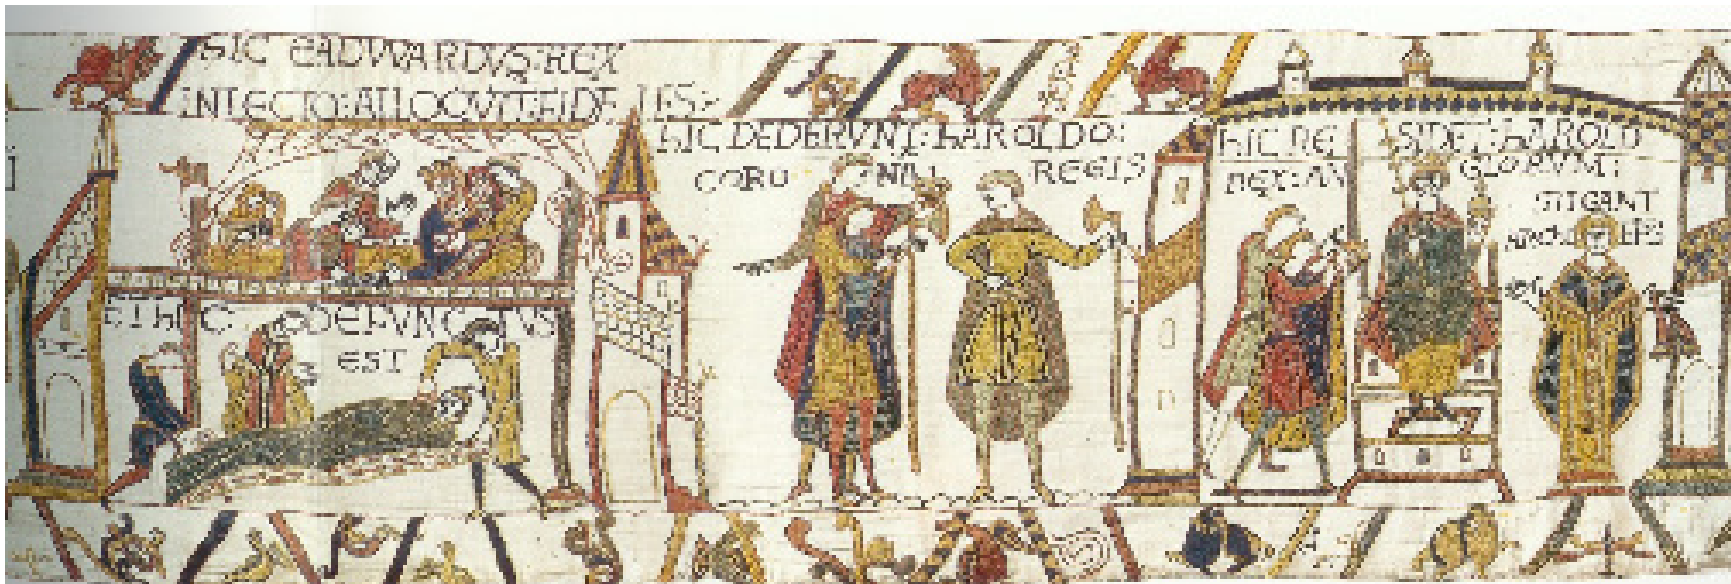 HIC EADVVARDVS: REX
IN LECTO: ALLOQVIT: FIDELES:
ET hIC DEFVNCTVS
EST
hIC DEDERVNT: hAROLDO:
CORONA REGIS
hIC RESIDET: hAROLD
REX: ANGLORVM:
STIGANT
ARChIEPS